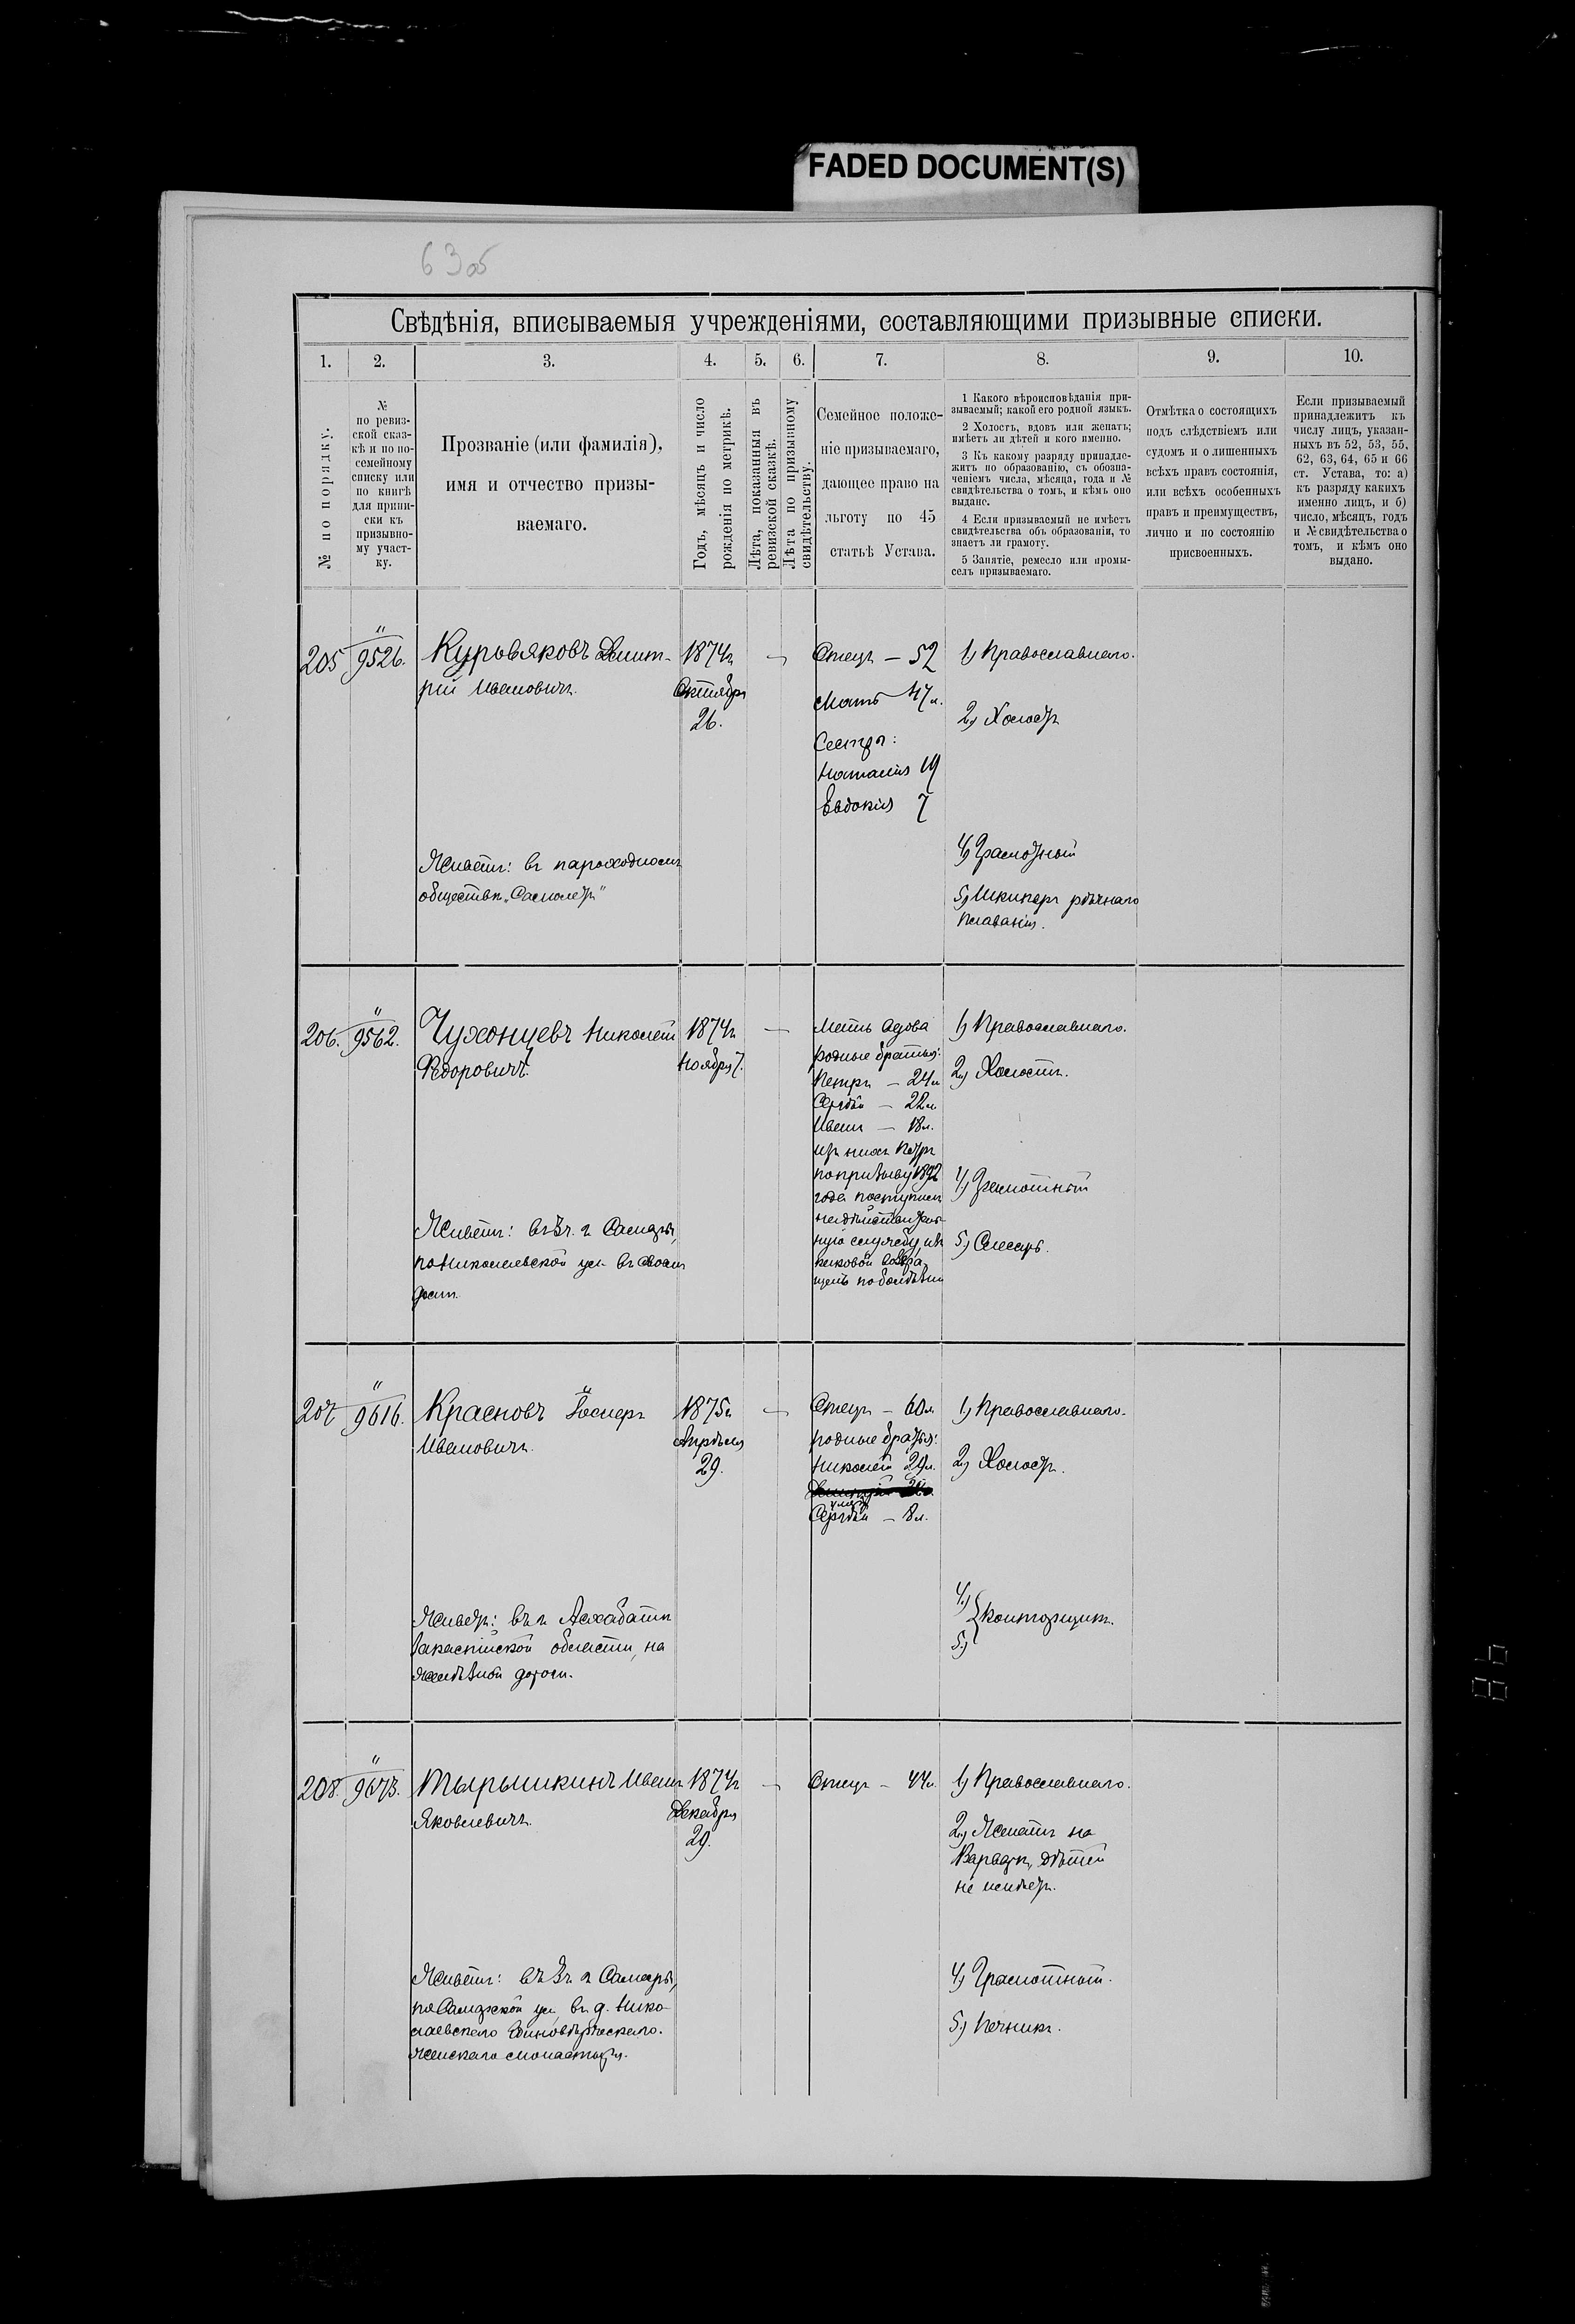 FADED DOCUMENT(S)
63 об
Свѣдѣнія, вписываемыя учрежденіями, составляющими призывные списки.
1. 2. 3. 4. 5. 6. 7. 8. 9. 10.
№ по порядку.
№
по ревиз-
ской сказ-
кѣ и по по-
семейному
списку или
по книгѣ
для припи-
ски къ
призывно-
му участ-
ку.
Прозваніе (или фамилія),
имя и отчество призы-
ваемаго.
Годъ, мѣсяцъ и число
рожденія по метрикѣ.
Лѣта, показанныя въ
ревизской сказкѣ.
Лѣта по призывному
свидѣтельству.
Семейное положе-
ніе призываемаго,
дающее право на
льготу по 45
статьѣ Устава.
1 Какого вѣроисповѣданія при-
зываемый; какой его родной языкъ.
2 Холостъ, вдовъ или женатъ;
имѣетъ ли дѣтей и кого именно.
3 Къ какому разряду принадле-
житъ по образованію, съ обозна-
ченіемъ числа, мѣсяца, года и №
свидѣтельства о томъ, и кѣмъ оно
выдано.
4 Если призываемый не имѣетъ
свидѣтельства объ образованіи, то
знаетъ ли грамоту.
5 Занятіе, ремесло или промы-
селъ призываемаго.
Отмѣтка о состоящихъ
подъ слѣдствіемъ или
судомъ и о лишенныхъ
всѣхъ правъ состоянія,
или всѣхъ особенныхъ
правъ и преимуществъ,
лично и по состоянію
присвоенныхъ.
Если призываемый
принадлежитъ къ
числу лицъ, указан-
ныхъ въ 52, 53, 55,
62, 63, 64, 65 и 66
ст. Устава, то: а)
къ разряду какихъ
именно лицъ, и б)
число, мѣсяцъ, годъ
и № свидѣтельства о
томъ, и кѣмъ оно
выдано.
205
"
9526.
Куровяковъ Дмит-
рій Ивановичъ.
Живетъ: въ пароходномъ
обществѣ „Самолетъ"
1874г
Октября
26.
—
Отецъ — 52
Мать 47 л.
Сестры:
Наталія 19
Евдокія 7
1) Православнаго.
2) Холостъ
4) Грамотный
5) Шкиперъ рѣчнаго
плаванія.
206.
"
9562.
Чухонцевъ Николай
Федоровичъ.
Живетъ: въ 3 ч. г. Самары,
по Николаевской ул. въ своемъ
домѣ.
1874г
Ноября 7.
—
Мать вдова
родные братья:
Петръ — 24 л
Сергѣй — 22 л.
Иванъ — 18 л.
изъ нихъ Петръ
по призыву 1892
года поступилъ
на дѣйствитель-
ную службу, изъ
по болѣзни
1) Православнаго.
2) Холостъ.
4) Грамотный
5) Слесарь.
207
"
9616.
Красновъ
Ивановичъ.
Живетъ: въ г. Асхабатѣ
Закаспійской области, на
желѣзной дорогѣ.
1875г
Апрѣля
29.
—
Отецъ — 60 л.
родные братья:
Николай 29 л.
Сергѣй — 8 л.
1) Православнаго.
2) Холостъ.
4)
5)
Конторщикъ.
208.
"
9673.
Тырышкинъ Иванъ
Яковлевичъ.
Живетъ: въ 3 ч. г. Самары,
по Самарской ул. въ д. Нико-
лаевскаго Единовѣрческаго.
Женскаго монастыря.
1874г
Декабря
29.
—
Отецъ — 44 л.
1) Православнаго.
2) Женатъ на
Варварѣ, дѣтей
не имѣетъ.
4) Грамотный.
5) Печникъ.